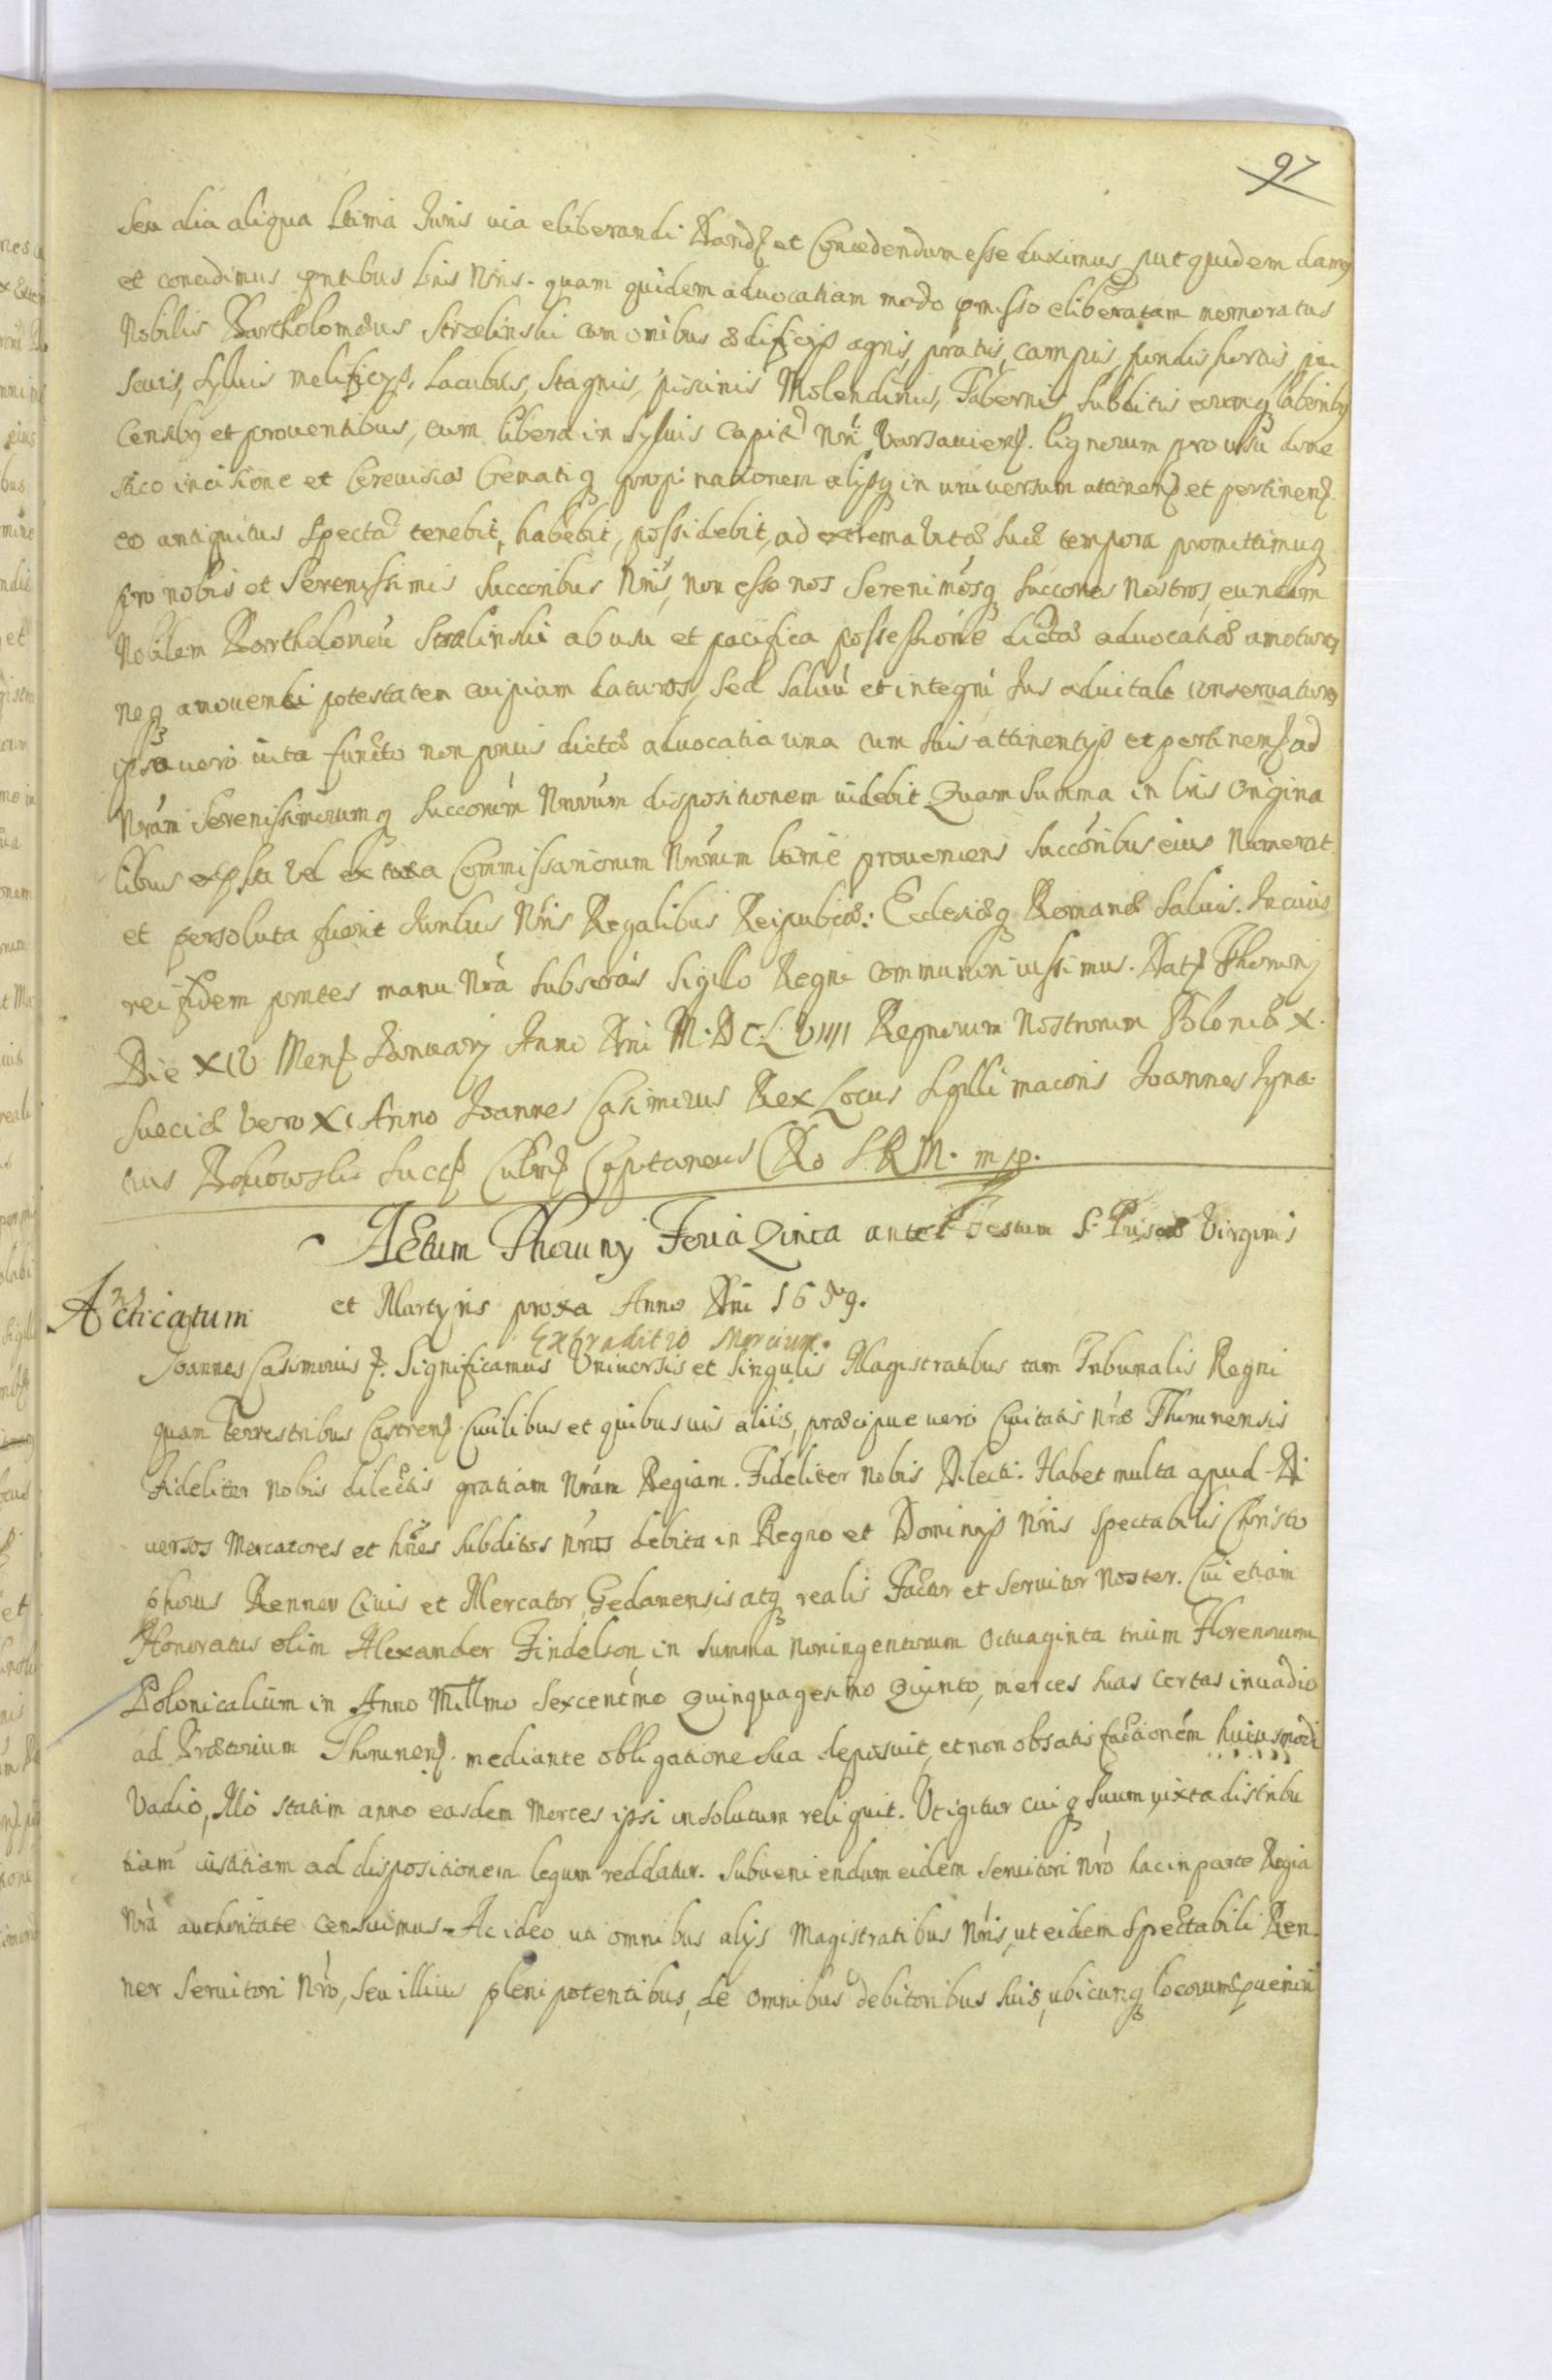 97
Seu alia aliqua ltima Juris uia eliberandi Dand et Concedendum esse duximus put quidem damus
et concedimus pntibus Lris Nris. quam quidem aduocatiam modo pmisso eliberatam memoratus
Nobilis Bartholomæus Strzelinski cum omibus ædificijs agris, pratis, campis, fundis hortis, pa
scuis, syluis melificijs, Lacubus, Stagnis, piscinis Molendinis, Tabernis Subditis eorumq laboribus
Censibus et prouentibus, cum libera in syluis Capit Nri Varsauiens. lignorum pro usu dome
stico incisione et Cereuisiæ Crematiq propinationem alijsq in uniuersum attinen et pertinen
eo antiquitus Specta tenebit, habebit, possidebit, ad extrema uitæ suæ tempora promittimusq
pro nobis et Serenissimis Succoribus Nris, non esse nos Serenimosq Succores Nostros, eundem
Nobilem Bartholomeu Strzelinski ab usu et pacifica possessione dictæ aduocatiæ amoturos
neq amouendi potestatem cuipiam daturos, sed saluu et integru Jus aduitale conseruaturos
ipso uero uita functo non prius dicta aduocatia una cum suis attinentijs et pertinens ad
Nram Serenissimorumq Succorum Nrorum dispositionem uidebit Quam Summa in lris Origina
libus expssa vel ex taxa Commissariorum Nrorum ltime proueniens Succoribus eius Numerat
et persoluta fuerit Juribus Nris Regalibus Reipubcæ: Ecclesiæq Romanæ Saluis. In cuius
rei fidem pntes manu Nra Subscras Sigillo Regni communiri iussimus. Dat Thorunij
Die XIV Mens January Anno Dni M.DC.L.VIIII Regnorum Nostrorum Poloniæ X.
Sueciæ Vero XI Anno Joannes Casimirus Rex Locus Sgilli maioris Joannes Igna
cius Bąkowski Succ Culm Capitaneus S.R.M. mp.
Actum Thoruny Feria Qinta ante Festum S. Priscæ Virginis
et Martyris proxa Anno Dni 1659.
Acticatum
Extraditio Mercium.
Joannes Casimirus Significamus Vniuersis et Singulis Magistratibus tam Tribunalis Regni
quam Terrestribus Castrens Ciuilibus et quibusuis aliis, præcipue uero Ciuitatis nræ Thorunensis
Fideliter nobis dilectis gratiam Nram Regiam. Fideliter nobis Dilecti. Habet multa apud Di
uersos Mercatores et hoies Subditos nros debita in Regno et Dominijs Nris Spectabilis Christo
phorus Renner Ciuis et Mercator Gedanensis atq realis Factor et Seruitor Noster. Cui etiam
Honoratus olim Alexander Findelson in Summa noningentorum Octuaginta trium Florenorum
Polonicalium in Anno Millmo Sexcentmo Quinquagesimo Quinto, merces suas certas in uadio
ad Prætorium Thorunens. mediante obligatione sua deposuit, et non ob satisfactionem huiusmodi
Vadio, Illo statim anno easdem Merces ipsi in solutum reliquit. Ut igitur cuiq Suum iuxta distribu
tiam iustitiam ad dispositionem legum reddatur. Subueniendum eidem Seruitori Nro hac in parte Regia
Nra authoritate censuimus. Ac ideo uti omnibus alijs Magistratibus Nris, ut eidem Spectabili Ren
ner Seruitori Nro, Seu illius plenipotentibus, de omnibus debitoribus Suis, ubicunq locorum